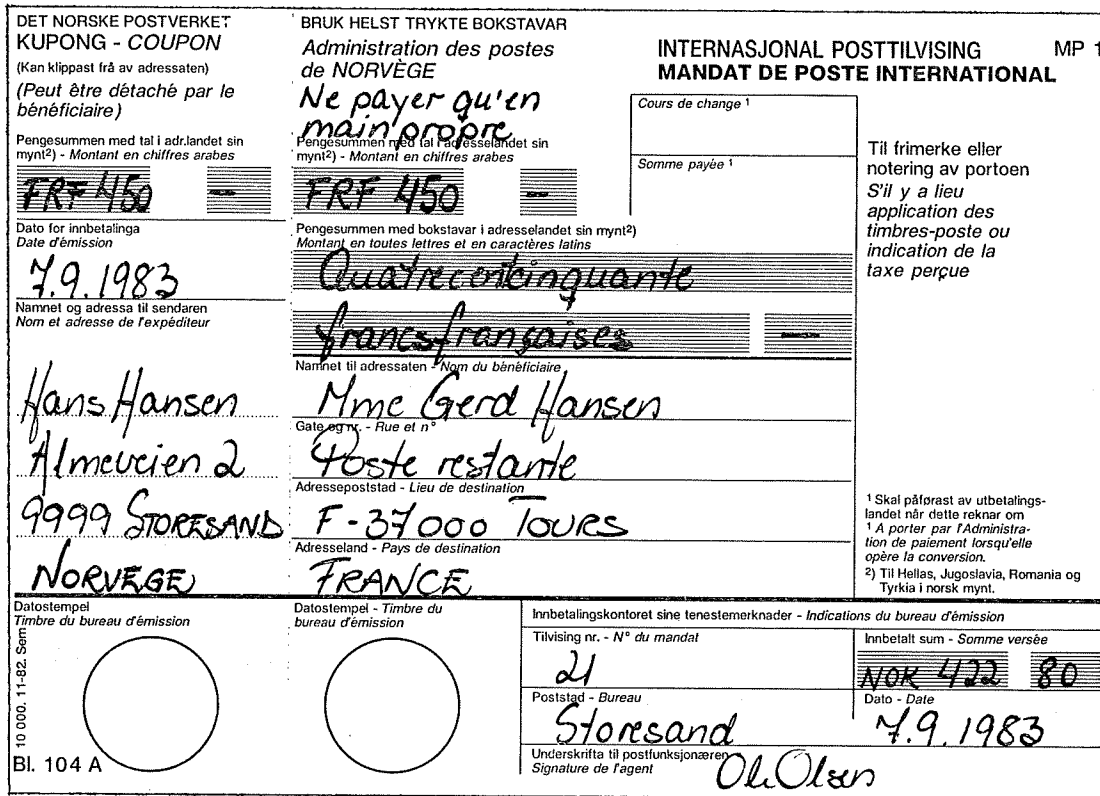 DET NORSKE POSTVERKET
KUPONG - COUPON
(Kan klippast frå av adressaten)
(Peut être détaché par le
bénéficiaire)
Pengesummen med tal i adr.landet sin
mynt2) - Montant en chiffres arabes
FRF 450 -
Dato for innbetalinga
Date d'émission
7.9.1983
Namnet og adressa til sendaren
Nom et adresse de l'expéditeur
Hans Hansen
Almeveien 2
9999 STORESAND
NORVEGE
BRUK HELST TRYKTE BOKSTAVAR
Administration des postes
de NORVÈGE
Ne payer qu'en
main propre
Pengesummen med tal i adresselandet sin
mynt2) - Montant en chiffres arabes
FRF 450 -
Pengesummen med bokstavar i adresselandet sin mynt2)
Montant en toutes lettres et en caractères latins
Quatrecentcinquante
francs françaises -
Namnet til adressaten - Nom du bénéficiaire
Mme Gerd Hansen
Gate og nr. - Rue et n°
Poste restante
Adressepoststad - Lieu de destination
F-37000 TOURS
Adresseland - Pays de destination
FRANCE
INTERNASJONAL POSTTILVISING MP 1
MANDAT DE POSTE INTERNATIONAL
Cours de change 1
Somme payée 1
Til frimerke eller
notering av portoen
S'il y a lieu
application des
timbres-poste ou
indication de la
taxe perçue
1 Skal påførast av utbetalings-
landet når dette reknar om
1 A porter par l'Administra-
tion de paiement lorsqu'elle
opère la conversion.
2) Til Hellas, Jugoslavia, Romania og
Tyrkia i norsk mynt.
Datostempel
Timbre du bureau d'émission
10 000. 11-82. Sem
Bl. 104 A
Datostempel - Timbre du
bureau d'émission
Innbetalingskontoret sine tenestemerknader - Indications du bureau d'émission
Tilvising nr. - N° du mandat
21
Innbetalt sum - Somme versée
NOK 422 80
Poststad - Bureau
Storesand
Dato - Date
7.9.1983
Underskrifta til postfunksjonæren
Signature de l'agent
Ole Olsen